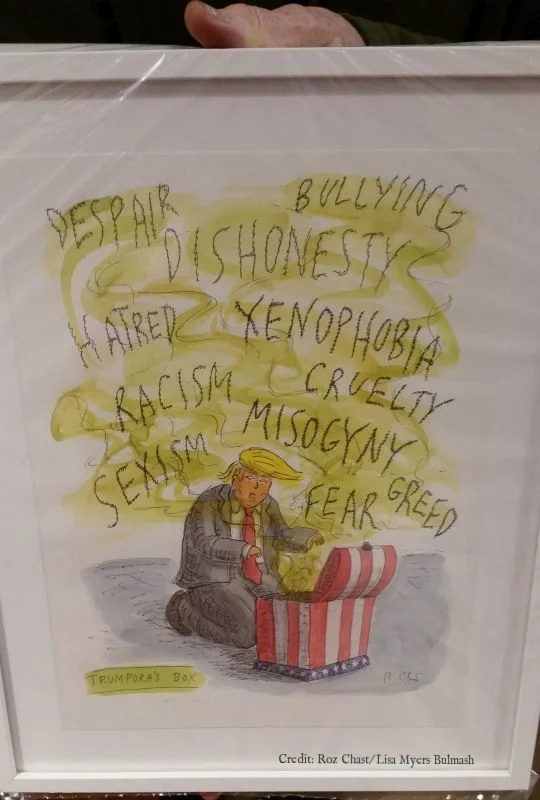 DESPAIR
BULLYING
DISHONESTY
HATRED
XENOPHOBIA
RACISM
CRUELTY
MISOGYNY
SEXISM
FEAR
GREED
TRUMPORA'S BOX
R. Chast
Credit: Roz Chast/Lisa Myers Bulmash